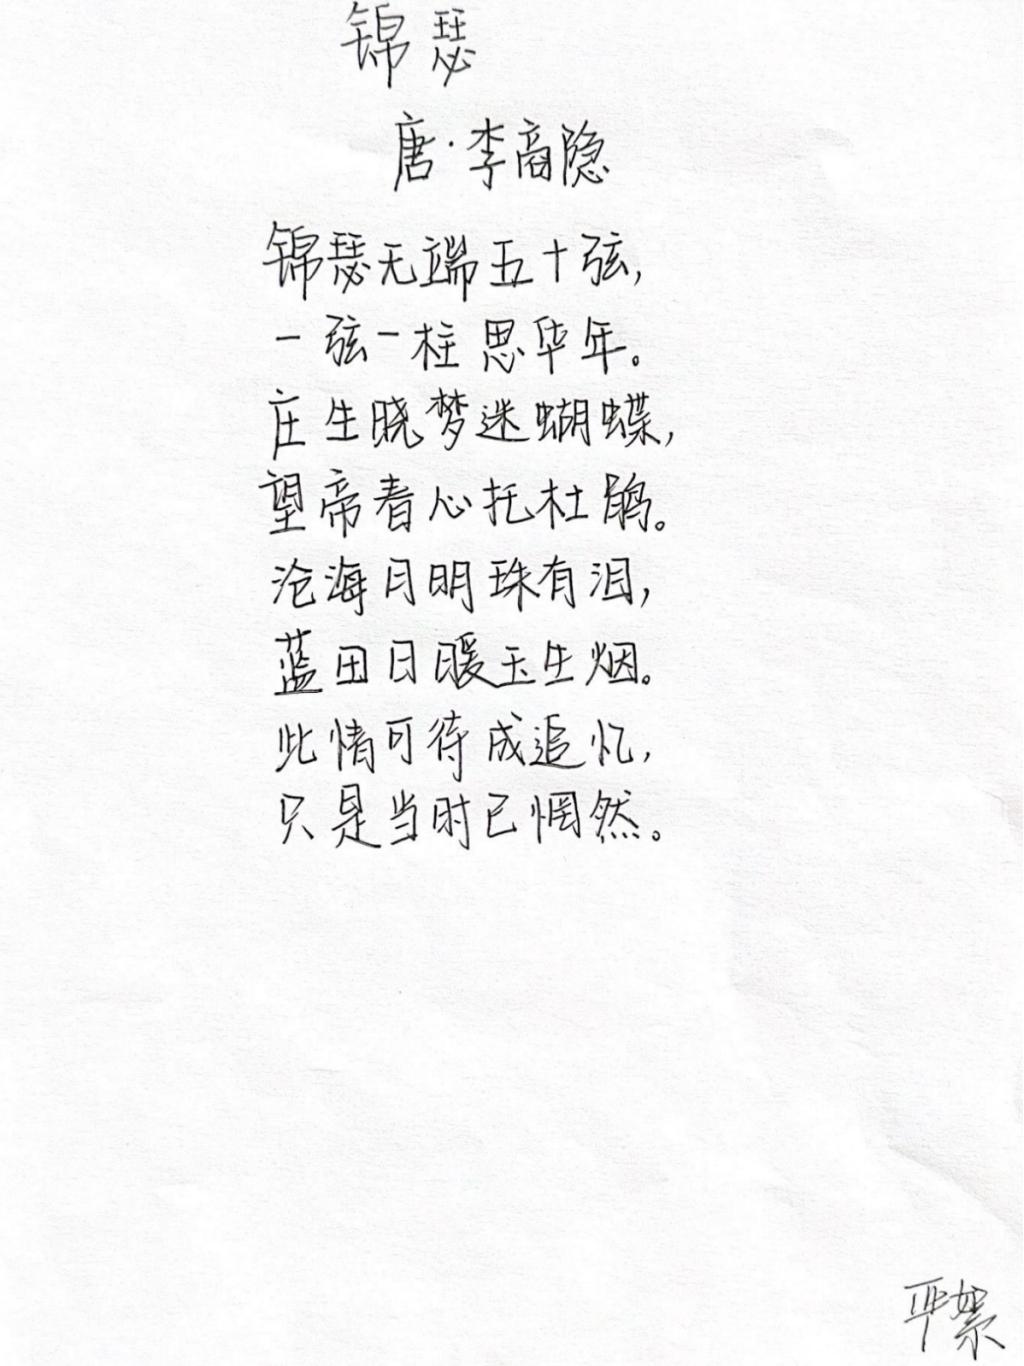 锦瑟
唐·李商隐
锦瑟无端五十弦,
一弦一柱思华年。
庄生晓梦迷蝴蝶,
望帝春心托杜鹃。
沧海月明珠有泪,
蓝田日暖玉生烟。
此情可待成追忆,
只是当时已惘然。
严絮